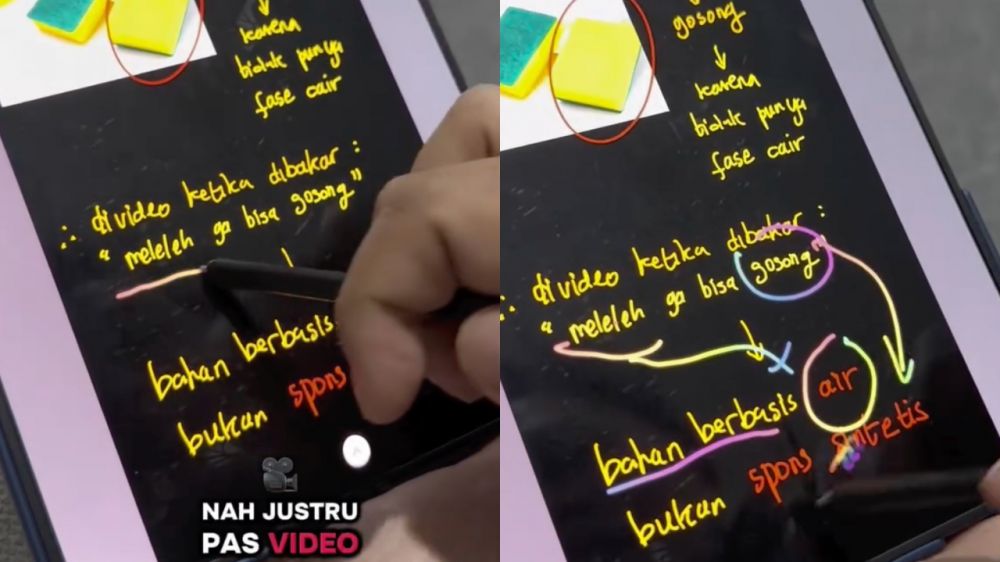 karena
bidak punya
fase cair
∴ di video ketika dibakar :
“ meleleh ga bisa gosong”
bahan berbasis
bukan spons
NAH JUSTRU
PAS VIDEO
gosong
karena
bidak punya
fase cair
∴ di video ketika dibakar :
“ meleleh ga bisa gosong”
bahan berbasis air
bukan spons sintetis